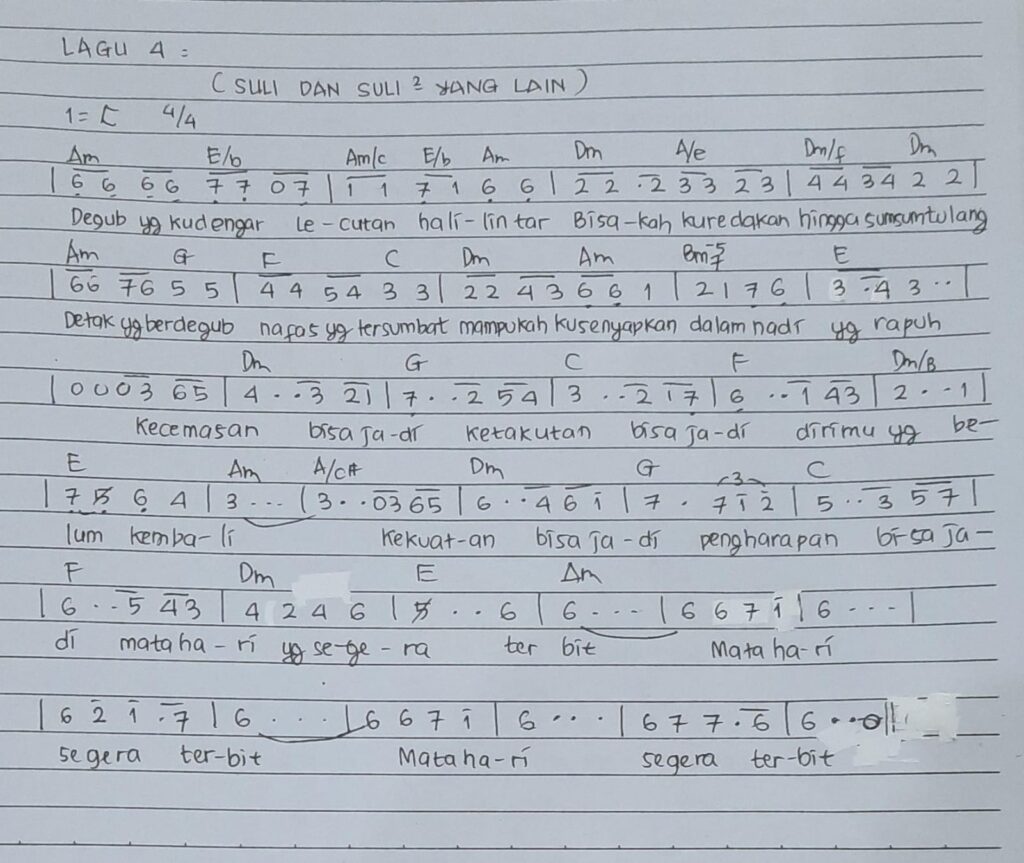 LAGU 4 :
( SULI DAN SULI ² YANG LAIN )
1 = C 4/4
Am E/b Am/c E/b Am Dm A/e Dm/f Dm
| 6 6 6 6 7 7 0 7 | 1 1 7 1 6 6 | 2 2 . 2 3 3 2 3 | 4 4 3 4 2 2 |
Degub yg kudengar le-cutan hali-lintar Bisa-kah kuredakan hingga sumsumtulang
Am G F C Dm Am Bm7-5 E
| 6 6 7 6 5 5 | 4 4 5 4 3 3 | 2 2 4 3 6 6 1 | 2 1 7 6 | 3 . 4 3 . . |
Detak yg berdegub nafas yg tersumbat mampukah kusenyapkan dalam nadi yg rapuh
Dm G C F Dm/B
| 0 0 0 3 6 5 | 4 . . 3 2 1 | 7 . . 2 5 4 | 3 . . 2 1 7 | 6 . . 1 4 3 | 2 . . 1 |
Kecemasan bisa ja-di ketakutan bisa ja-di dirimu yg be-
E Am A/c# Dm G C
| 7 5 6 4 | 3 . . . | 3 . . 0 3 6 5 | 6 . . 4 6 1 | 7 . 7 1 2 | 5 . . 3 5 7 |
3
lum kemba-li Kekuat-an bisa ja-di pengharapan bi-sa ja-
F Dm E Am
| 6 . . 5 4 3 | 4 2 4 6 | 5 . . 6 | 6 . . . | 6 6 7 1 | 6 . . . |
di mataha-ri yg se-ge-ra ter bit Mata ha-ri
| 6 2 1 . 7 | 6 . . . | 6 6 7 1 | 6 . . . | 6 7 7 . 6 | 6 . . 0 ||
segera ter-bit Mata ha-ri segera ter-bit